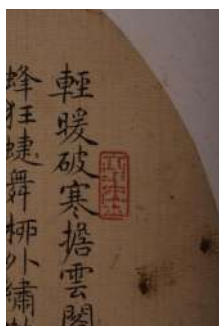 輕暖破寒擔雲閣
蜂狂蝶舞柳外繡